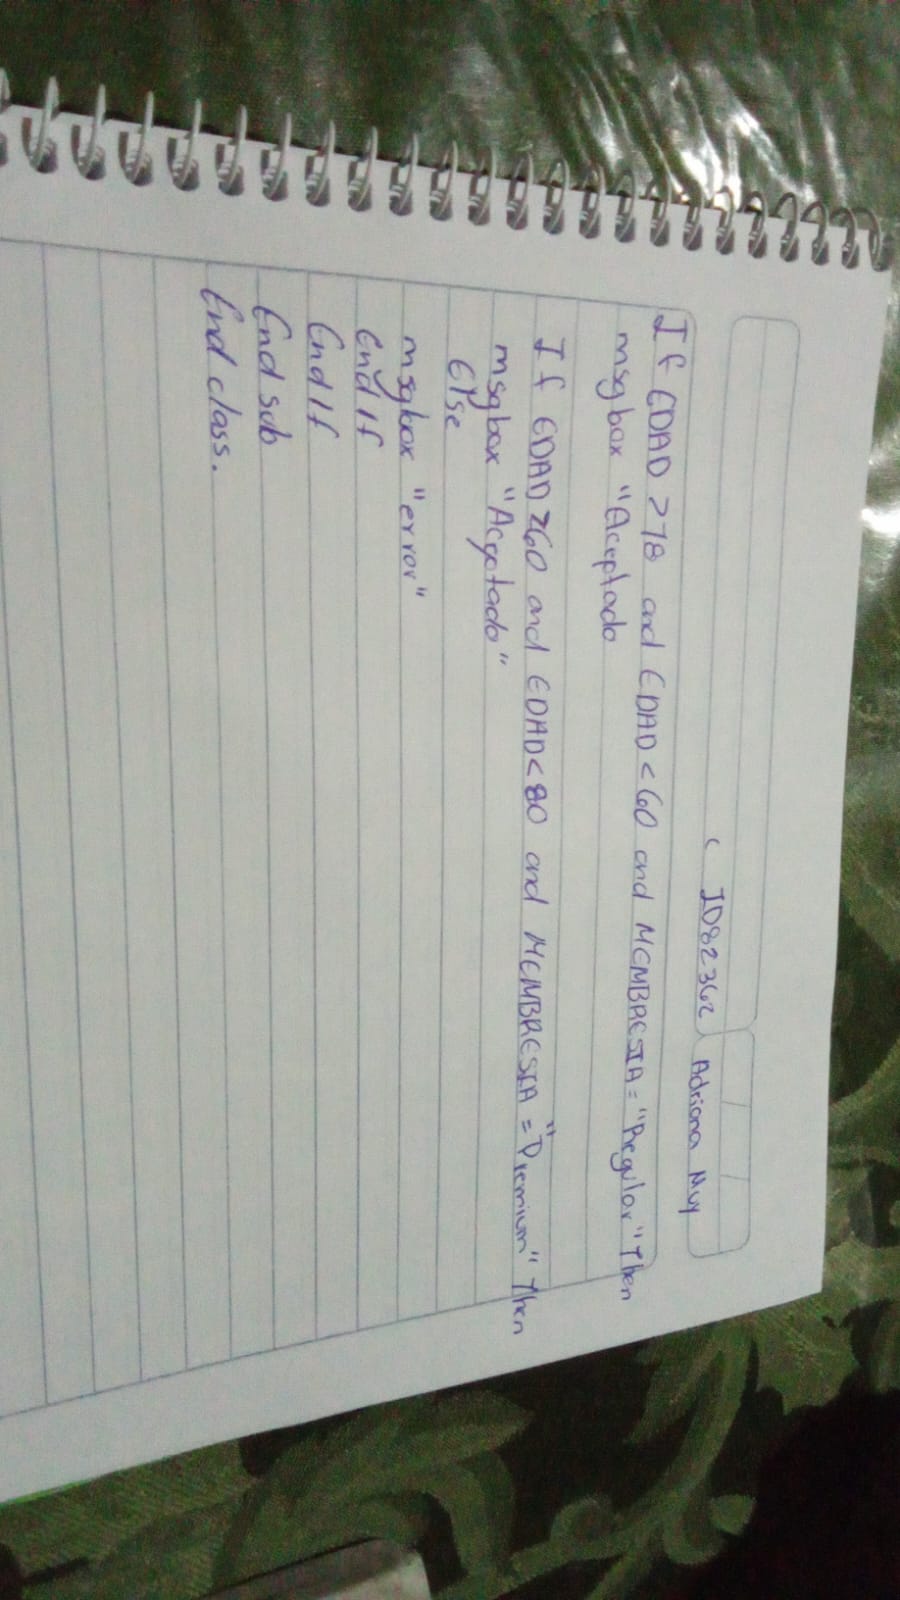 ( ID82362 Adriana Muy
If EDAD >18 and EDAD < 60 and MEMBRESIA = "Regular" Then
msgbox "Aceptado
If EDAD ≥60 and EDAD < 80 and MEMBRESIA = "Premium" Then
msgbox "Aceptado"
Else
msgbox "error"
End If
End If
End sub
End class.